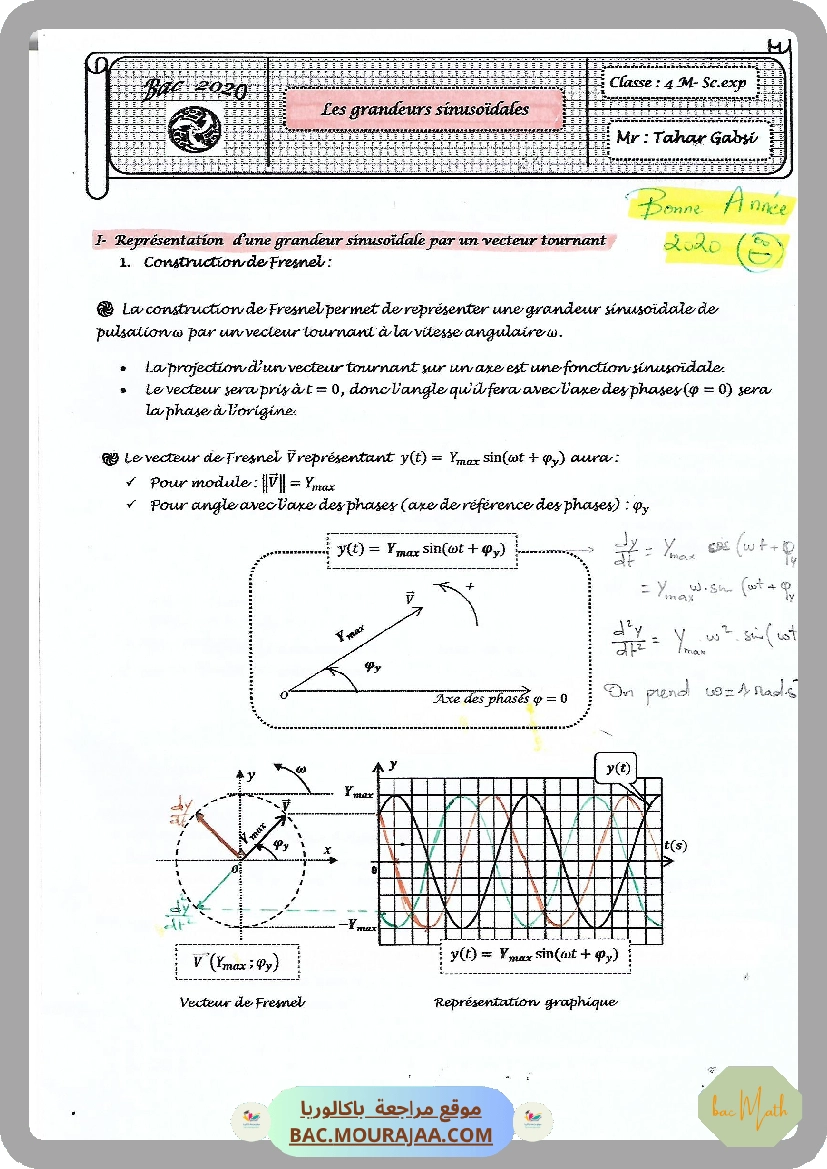 Bac 2020
Les grandeurs sinusoïdales
Classe : 4 M- Sc.exp
Mr : Tahar Gabsi
Bonne Année
2020
I- Représentation d'une grandeur sinusoïdale par un vecteur tournant
1. Construction de Fresnel :
La construction de Fresnel permet de représenter une grandeur sinusoïdale de
pulsation ω par un vecteur tournant à la vitesse angulaire ω.
• La projection d'un vecteur tournant sur un axe est une fonction sinusoïdale.
• Le vecteur sera pris à t = 0, donc l'angle qu'il fera avec l'axe des phases (φ = 0) sera
la phase à l'origine.
Le vecteur de Fresnel V⃗ représentant y(t) = Ymax sin(ωt + φy) aura :
✓ Pour module : ‖V⃗‖ = Ymax
✓ Pour angle avec l'axe des phases (axe de référence des phases) : φy
y(t) = Ymax sin(ωt + φy)
dy/dt = Ymax cos (ωt + φy
= Ymax ω. sin (ωt + φy
d²y/dt² = Ymax ω². sin(ωt
On prend ω = 1 rad.s
V⃗
+
Ymax
φy
O
Axe des phases φ = 0
y
ω
Ymax
y
y(t)
dy/dt
V⃗
Ymax
φy
x
t(s)
O
0
d²y/dt²
-Ymax
V⃗ (Ymax ; φy)
y(t) = Ymax sin(ωt + φy)
Vecteur de Fresnel
Représentation graphique
موقع مراجعة باكالوريا
BAC.MOURAJAA.COM
bac Math